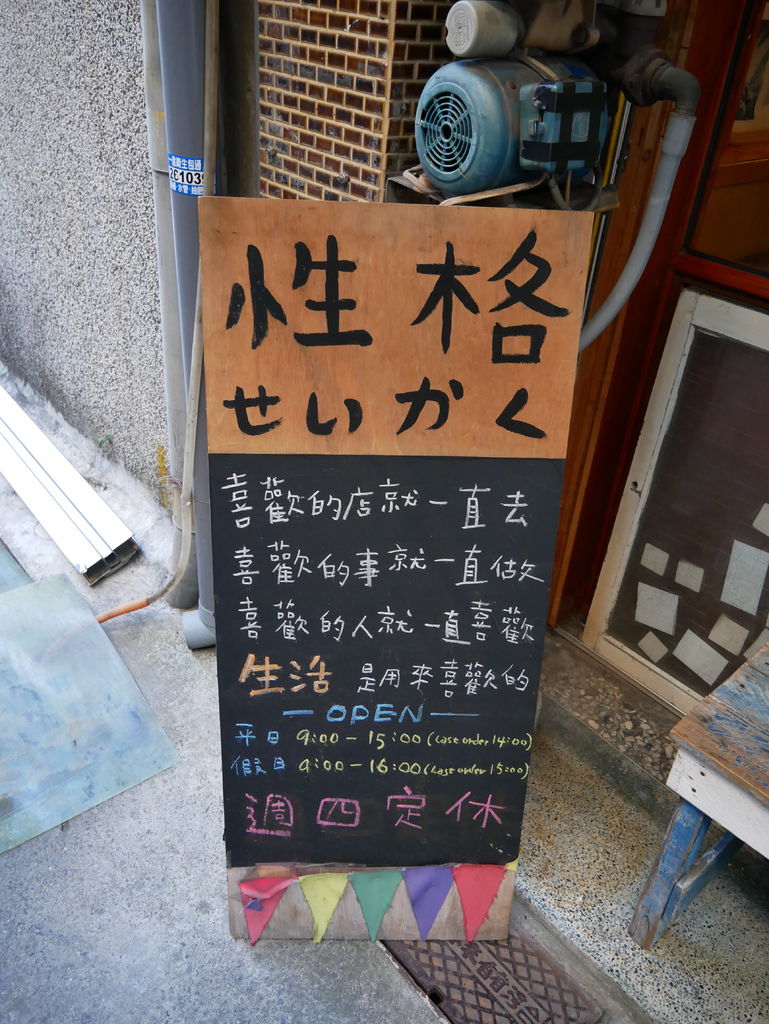 一級衛生包通
2C1039
水管·抽肥
性格
せいかく
喜歡的店就一直去
喜歡的事就一直做
喜歡的人就一直喜歡
生活 是用來喜歡的
— OPEN —
平日 9:00-15:00 (Last order 14:00)
假日 9:00-16:00 (Last order 15:00)
週四定休